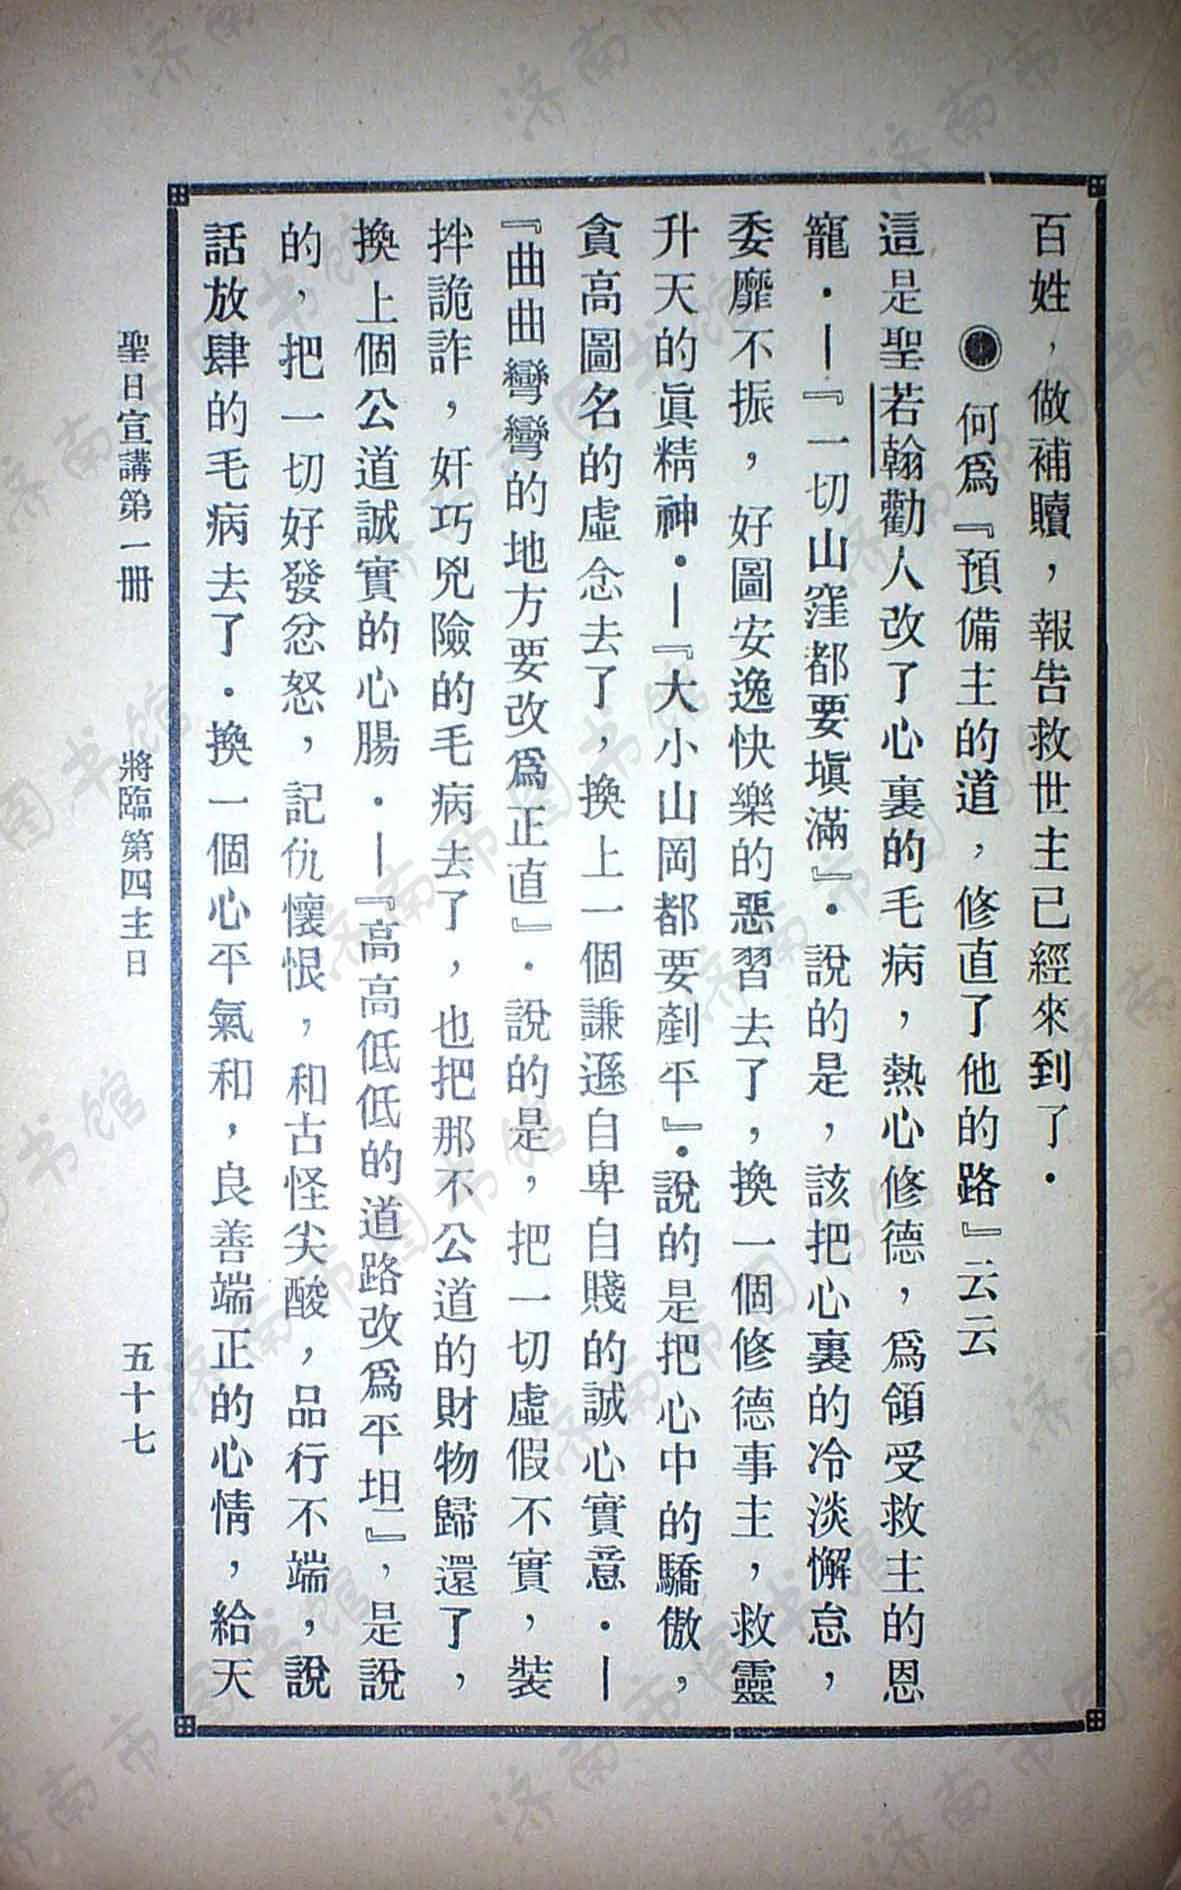 百姓，做補贖，報告救世主已經來到了．
◉何爲『預備主的道，修直了他的路』云云
這是聖若翰勸人改了心裏的毛病，熱心修德，爲領受救主的恩
寵．—『一切山窪都要塡滿』．說的是，該把心裏的冷淡懈怠，
委靡不振，好圖安逸快樂的惡習去了，換一個修德事主，救靈
升天的眞精神．—『大小山岡都要剷平』．說的是把心中的驕傲，
貪高圖名的虛念去了，換上一個謙遜自卑自賤的誠心實意．—
『曲曲彎彎的地方要改爲正直』．說的是，把一切虛假不實，裝
拌詭詐，奸巧兇險的毛病去了，也把那不公道的財物歸還了，
換上個公道誠實的心腸．—『高高低低的道路改爲平坦』，是說
的，把一切好發忿怒，記仇懷恨，和古怪尖酸，品行不端，說
話放肆的毛病去了．換一個心平氣和，良善端正的心情，給天
聖日宣講第一冊　將臨第四主日　五十七